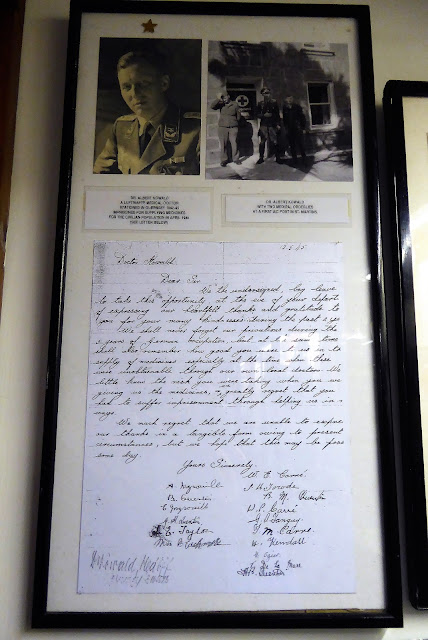 DR. ALBERT KOWALD
A LUFTWAFFE MEDICAL DOCTOR
STATIONED IN GUERNSEY 1941-45
IMPRISONED FOR SUPPLYING MEDICINES
FOR THE CIVILIAN POPULATION IN APRIL 1945
(SEE LETTER BELOW)
DR. ALBERT KOWALD
WITH TWO MEDICAL ORDERLIES
AT A FIRST AID POST IN ST. MARTINS
Doctor Kowald.
Dear Sir
We the undersigned, beg leave
to take this opportunity at the eve of your depart
of expressing our heartfelt thanks and gratitude to
you for your many kindnesses during the past
We shall never forget our privations during the
5 years of German Occupation, but at the same time
shall also remember how good you were to us in the
supply of medicines especially at the time when these
were unobtainable through our own local doctors. We
little knew the risk you were taking when you were
giving us the medicines, & greatly regret that you
had to suffer imprisonment through helping us in
ways.
We much regret that we are unable to express
our thanks in a tangible form owing to present
circumstances, but we hope that this may be poss
some day.
Yours Sincerely.
W. E. Carré
B. M.
W. P. Carré
E. Taylor
M. Carré
H. Kendall